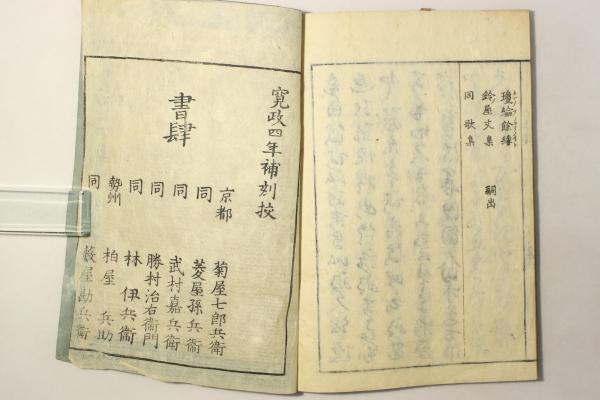 瓊綸餘纏
鈴屋文集 嗣出
同 歌集
寛政四年補刻挍
書肆
京都 菊屋七郎兵衛
同 菱屋孫兵衛
同 武村嘉兵衛
同 勝村治右衛門
同 林伊兵衛
勢州 柏屋兵助
同 藪屋勘兵衛